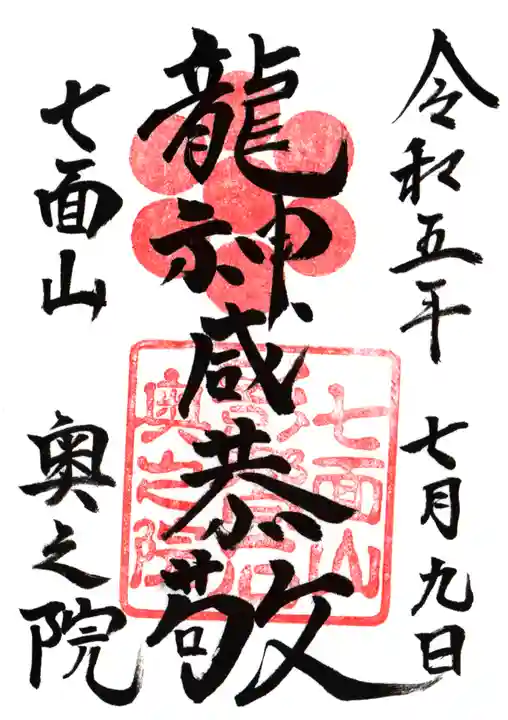 令和五年 七月九日
龍神咸恭敬
七面山 奥之院
七面山
奥之院